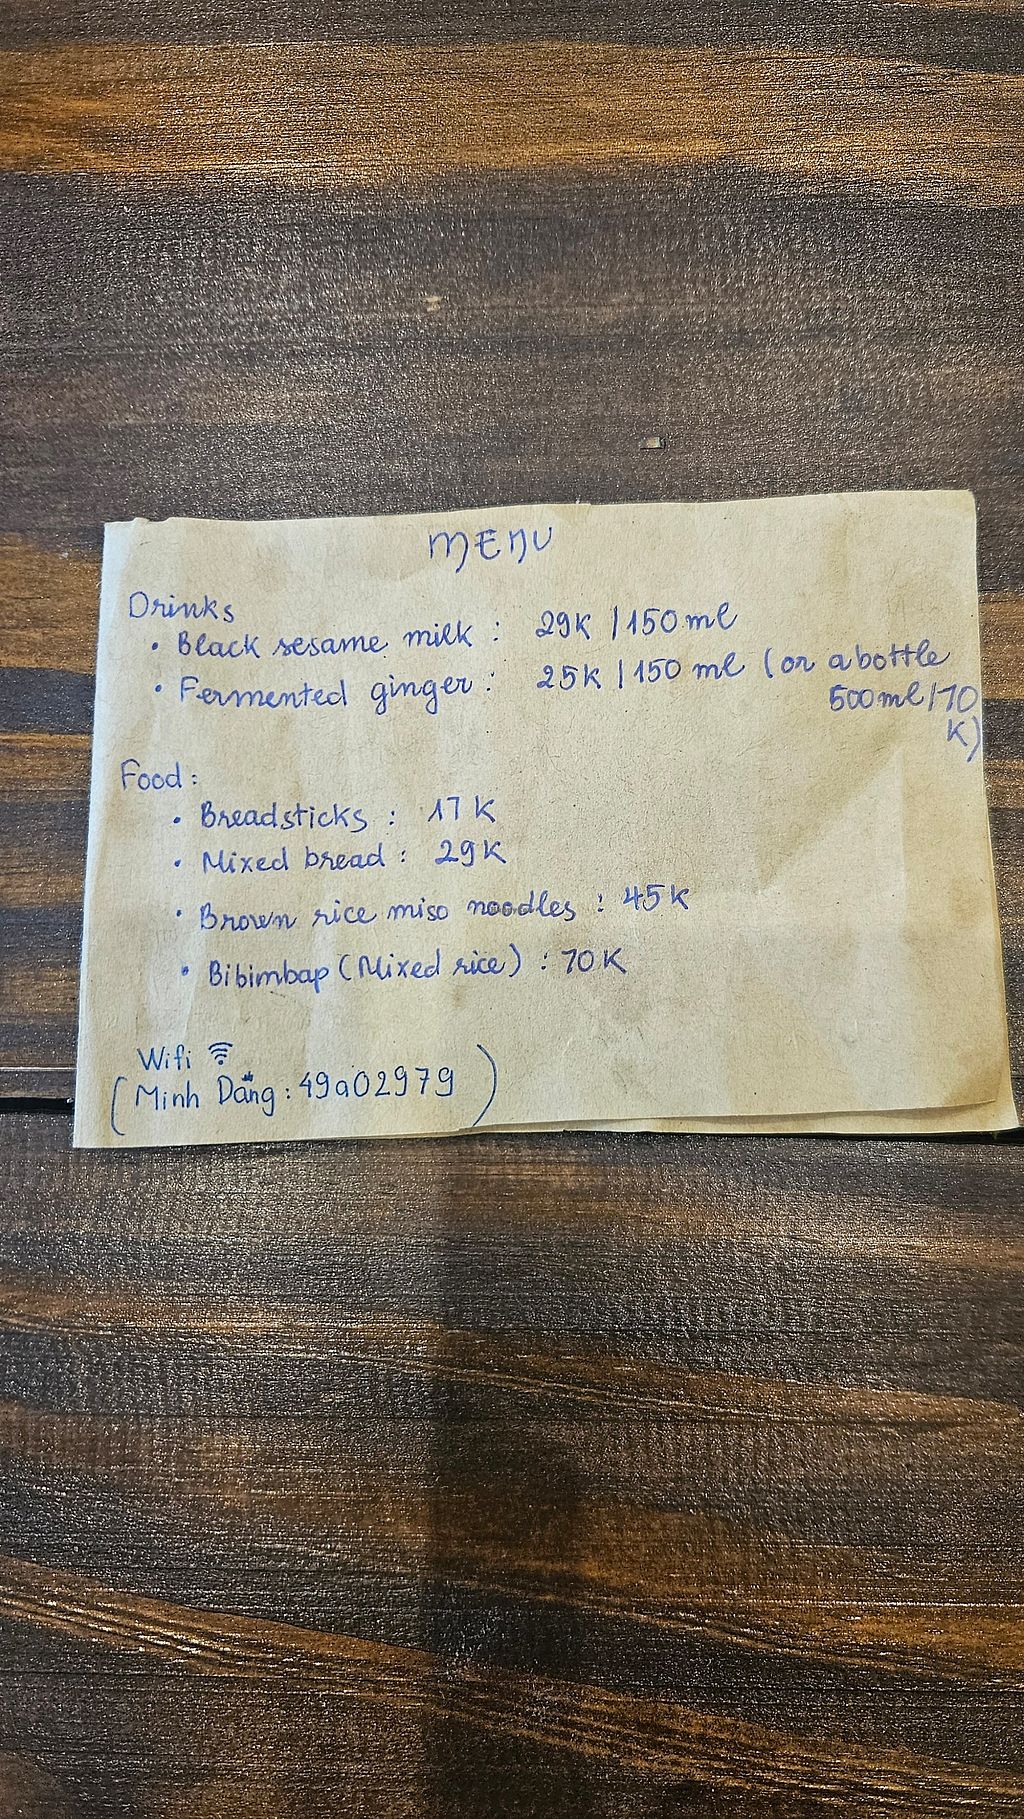 MENU
Drinks
• Black sesame milk : 29K / 150 ml
• Fermented ginger : 25K / 150 ml (or a bottle
500ml/70
K)
Food :
• Breadsticks : 17K
• Mixed bread : 29K
• Brown rice miso noodles : 45K
• Bibimbap (Mixed rice) : 70K
Wifi
(Minh Dăng : 49a02979)